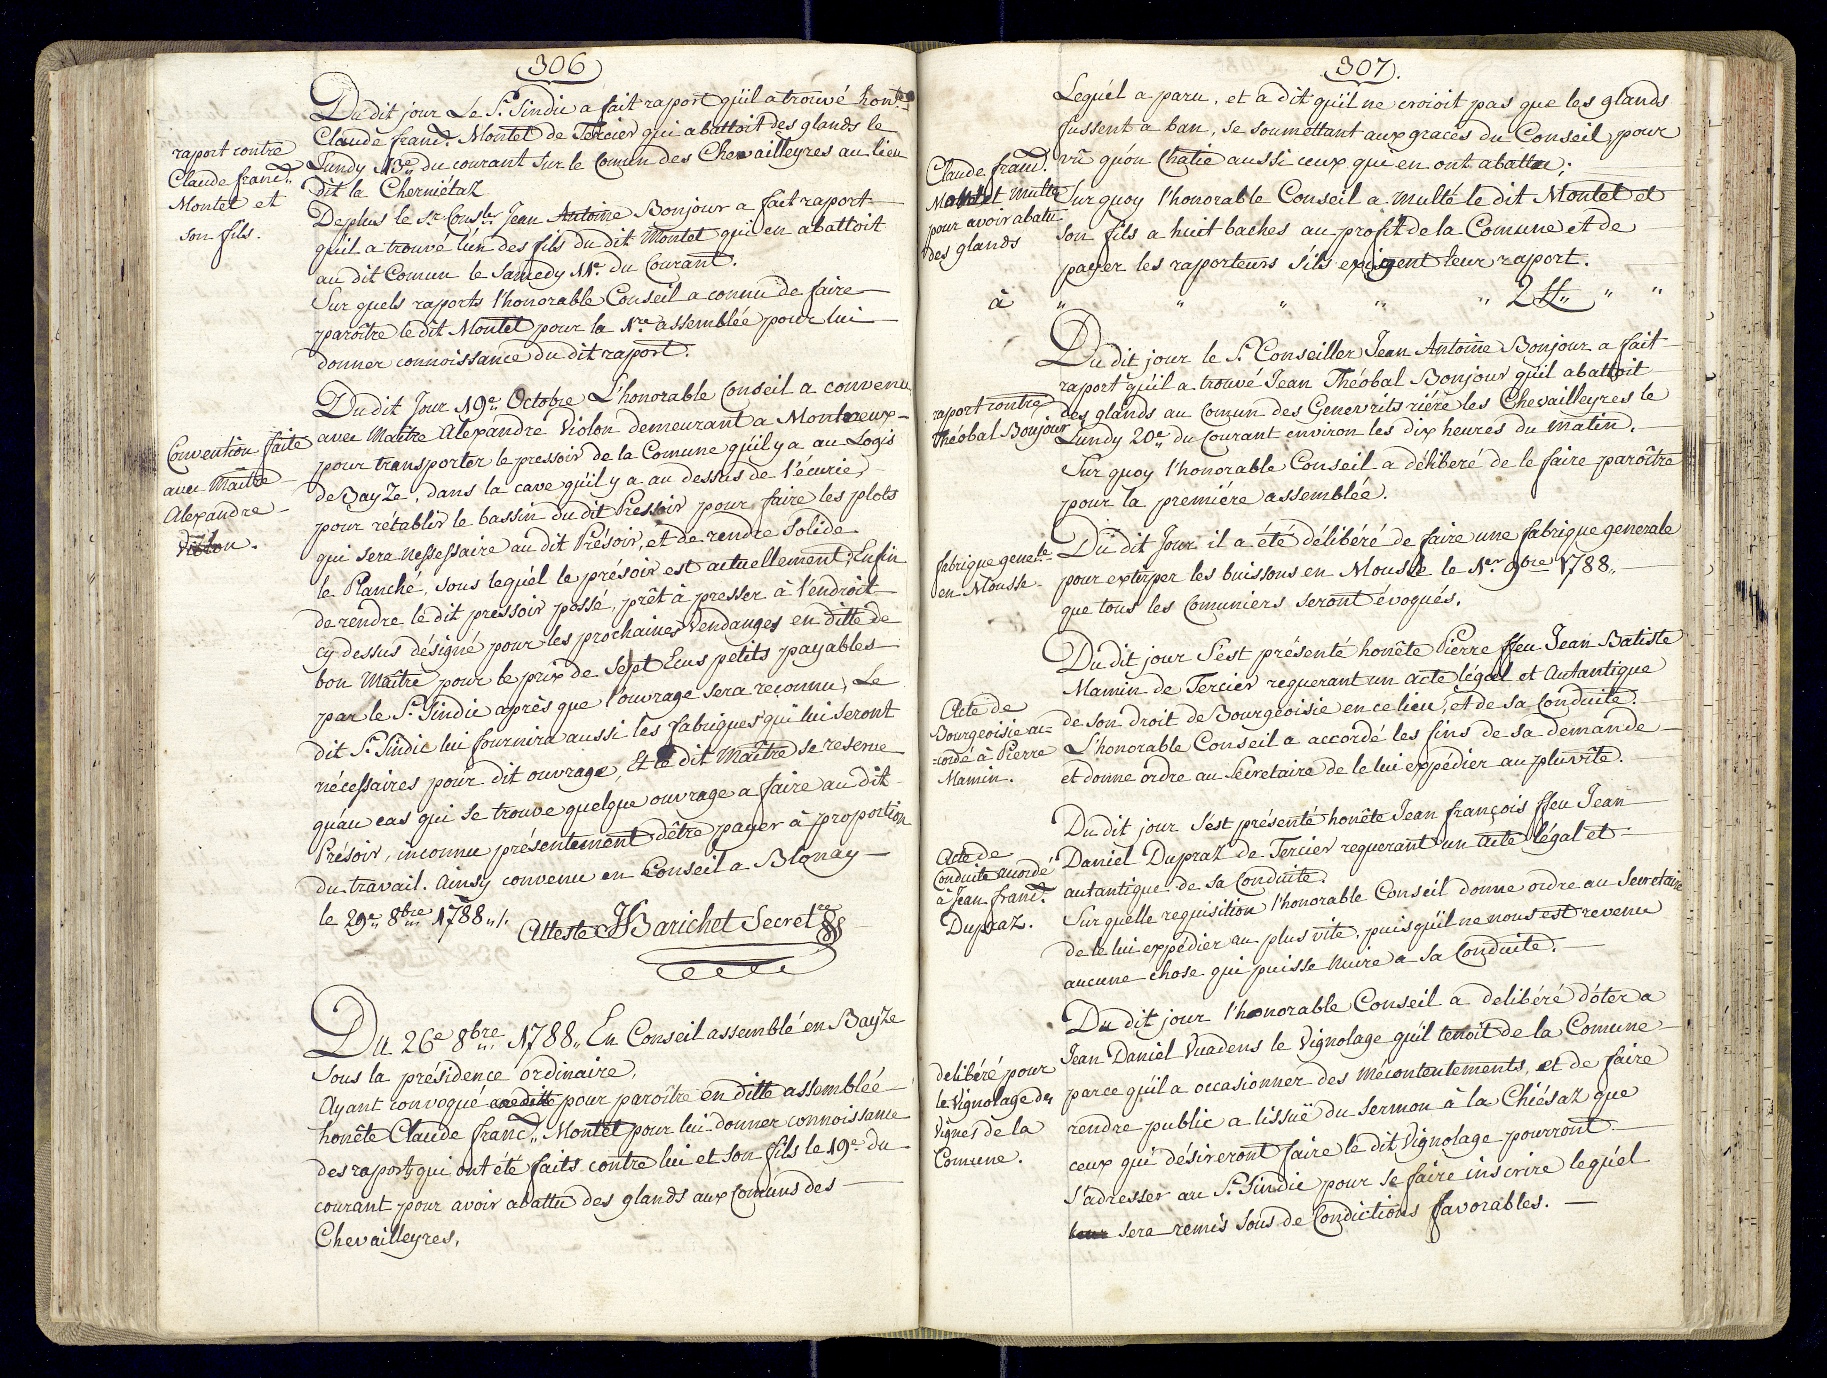 306
Du dit jour Le Sr. Sindic a fait raport qu'il a trouvé hon.te
Claude franc.s Montet de Tercier qui abattoit des glands le
Lundy 13e. du courant sur le Comun des Chevailleyres au lieu
dit la Cherniétaz
raport contre
Claude franc.s
Montet et
son fils.
De plus le Sr. Cons.ler Jean Antoine Bonjour a fait raport
qu'il a trouvé l'un des fils du dit Montet qui en abattoit
au dit Comun le Samedy 11e. du Courant.
Sur quels raports l'honorable Conseil a connu de faire
paroître le dit Montet pour la 1.re assemblée pour lui
donner connoissance du dit raport.
Du dit Jour 19e. Octobre L'honorable Conseil a convenu
avec Maître Alexandre Violon demeurant a Montreux
pour transporter le pressoir de la Comune qu'il y a au Logis
de Bayze, dans la cave qu'il y a au dessus de l'écurie,
pour rétablir le bassin du dit Pressoir pour faire les plots
qui sera nessessaire au dit Présoir, et de rendre solide
le Planché, sous lequel le présoir est actuellement; Enfin
de rendre le dit pressoir possé, prêt à presser à l'endroit
cy dessus désigné pour les prochaines vendanges en ditte de
bon Maître pour le prix de Sept Ecus petits payables
par le Sr. Sindic après que l'ouvrage sera reconnu, Le
dit Sr. Sindic lui fournira aussi les fabriques qui lui seront
nécessaires pour dit ouvrage, Et le dit Maître se reserve
qu'au cas qui se trouve quelque ouvrage a faire au dit
Présoir, inconnu présentement d'être payer à proportion
du travail. Ainsy convenu en Conseil a Blonay
le 29e. 8bre 1788.
Convention faite
avec Maître
Alexandre
Violon.
Atteste JBarichet Secret.re
Du 26e 8bre 1788. En Conseil assemblé en Bayze
sous la présidence ordinaire,
Ayant convoqué pour paroître en ditte assemblée
honête Claude franc.s Montet pour lui donner connoissance
des raports qui ont été faits contre lui et son fils le 19e. du
courant pour avoir abattu des glands aux Comuns des
Chevailleyres,
307.
Lequel a paru, et a dit qu'il ne croioit pas que les glands
fussent a ban, se soumettant aux graces du Conseil, pour
vû qu'on Chatie aussi ceux qui en ont abattu;
Sur quoy l'honorable Conseil a multé le dit Montet et
son fils a huit baches au profit de la Comune et de
payer les raporteurs s'ils exigent leur raport.
à " " " " " 2 ff " "
Claude franc.s
Montet Multé
pour avoir abatu
des glands
Du dit jour le Sr. Conseiller Jean Antoine Bonjour a fait
raport qu'il a trouvé Jean Théobal Bonjour qu'il abattoit
des glands au Comun des Genevrits riére les Chevailleyres le
Lundy 20e. du Courant environ les dix heures du matin.
Sur quoy l'honorable Conseil a déliberé de le faire paroître
pour la premiére assemblée.
raport contre
Théobal Bonjour
Du dit Jour il a été délibéré de faire une fabrique generale
pour extirper les buissons en Mousse le 1.er 9bre 1788.
que tous les Comuniers seront évoqués.
fabrique gene.le
en Mousse
Du dit jour S'est présenté honête Pierre ffeu Jean Batiste
Mamin de Tercier requerant un acte légal et Autantique
de son droit de Bourgeoisie en ce lieu, et de sa Conduite.
L'honorable Conseil a accordé les fins de sa demande
et donne ordre au Secretaire de le lui expédier au plu vîte.
Acte de
Bourgeoisie ac-
-cordé à Pierre
Mamin.
Du dit jour S'est présenté honête Jean françois ffeu Jean
Daniel Dupraz de Tercier requerant un acte légal et
autantique de sa Conduite.
Sur quelle requisition l'honorable Conseil donne ordre au Secretaire
de le lui expédier au plus vite, puis qu'il ne nous est revenu
aucune chose qui puisse nuire a sa Conduite.
Acte de
Conduite acordé
à Jean franc.s
Dupraz.
Du dit jour l'honorable Conseil a delibéré d'ôter a
Jean Daniel Vuadens le Vignolage qu'il tenoit de la Comune
parce qu'il a occasionner des mécontentements, et de faire
rendre public a l'issuë du sermon à la Chiésaz que
ceux qui désireront faire le dit Vignolage pourront
s'adresser au Sr. Sindic pour se faire inscrire lequel
sera remis sous de Condictions favorables.
delibéré pour
le Vignolage des
Vignes de la
Comune.